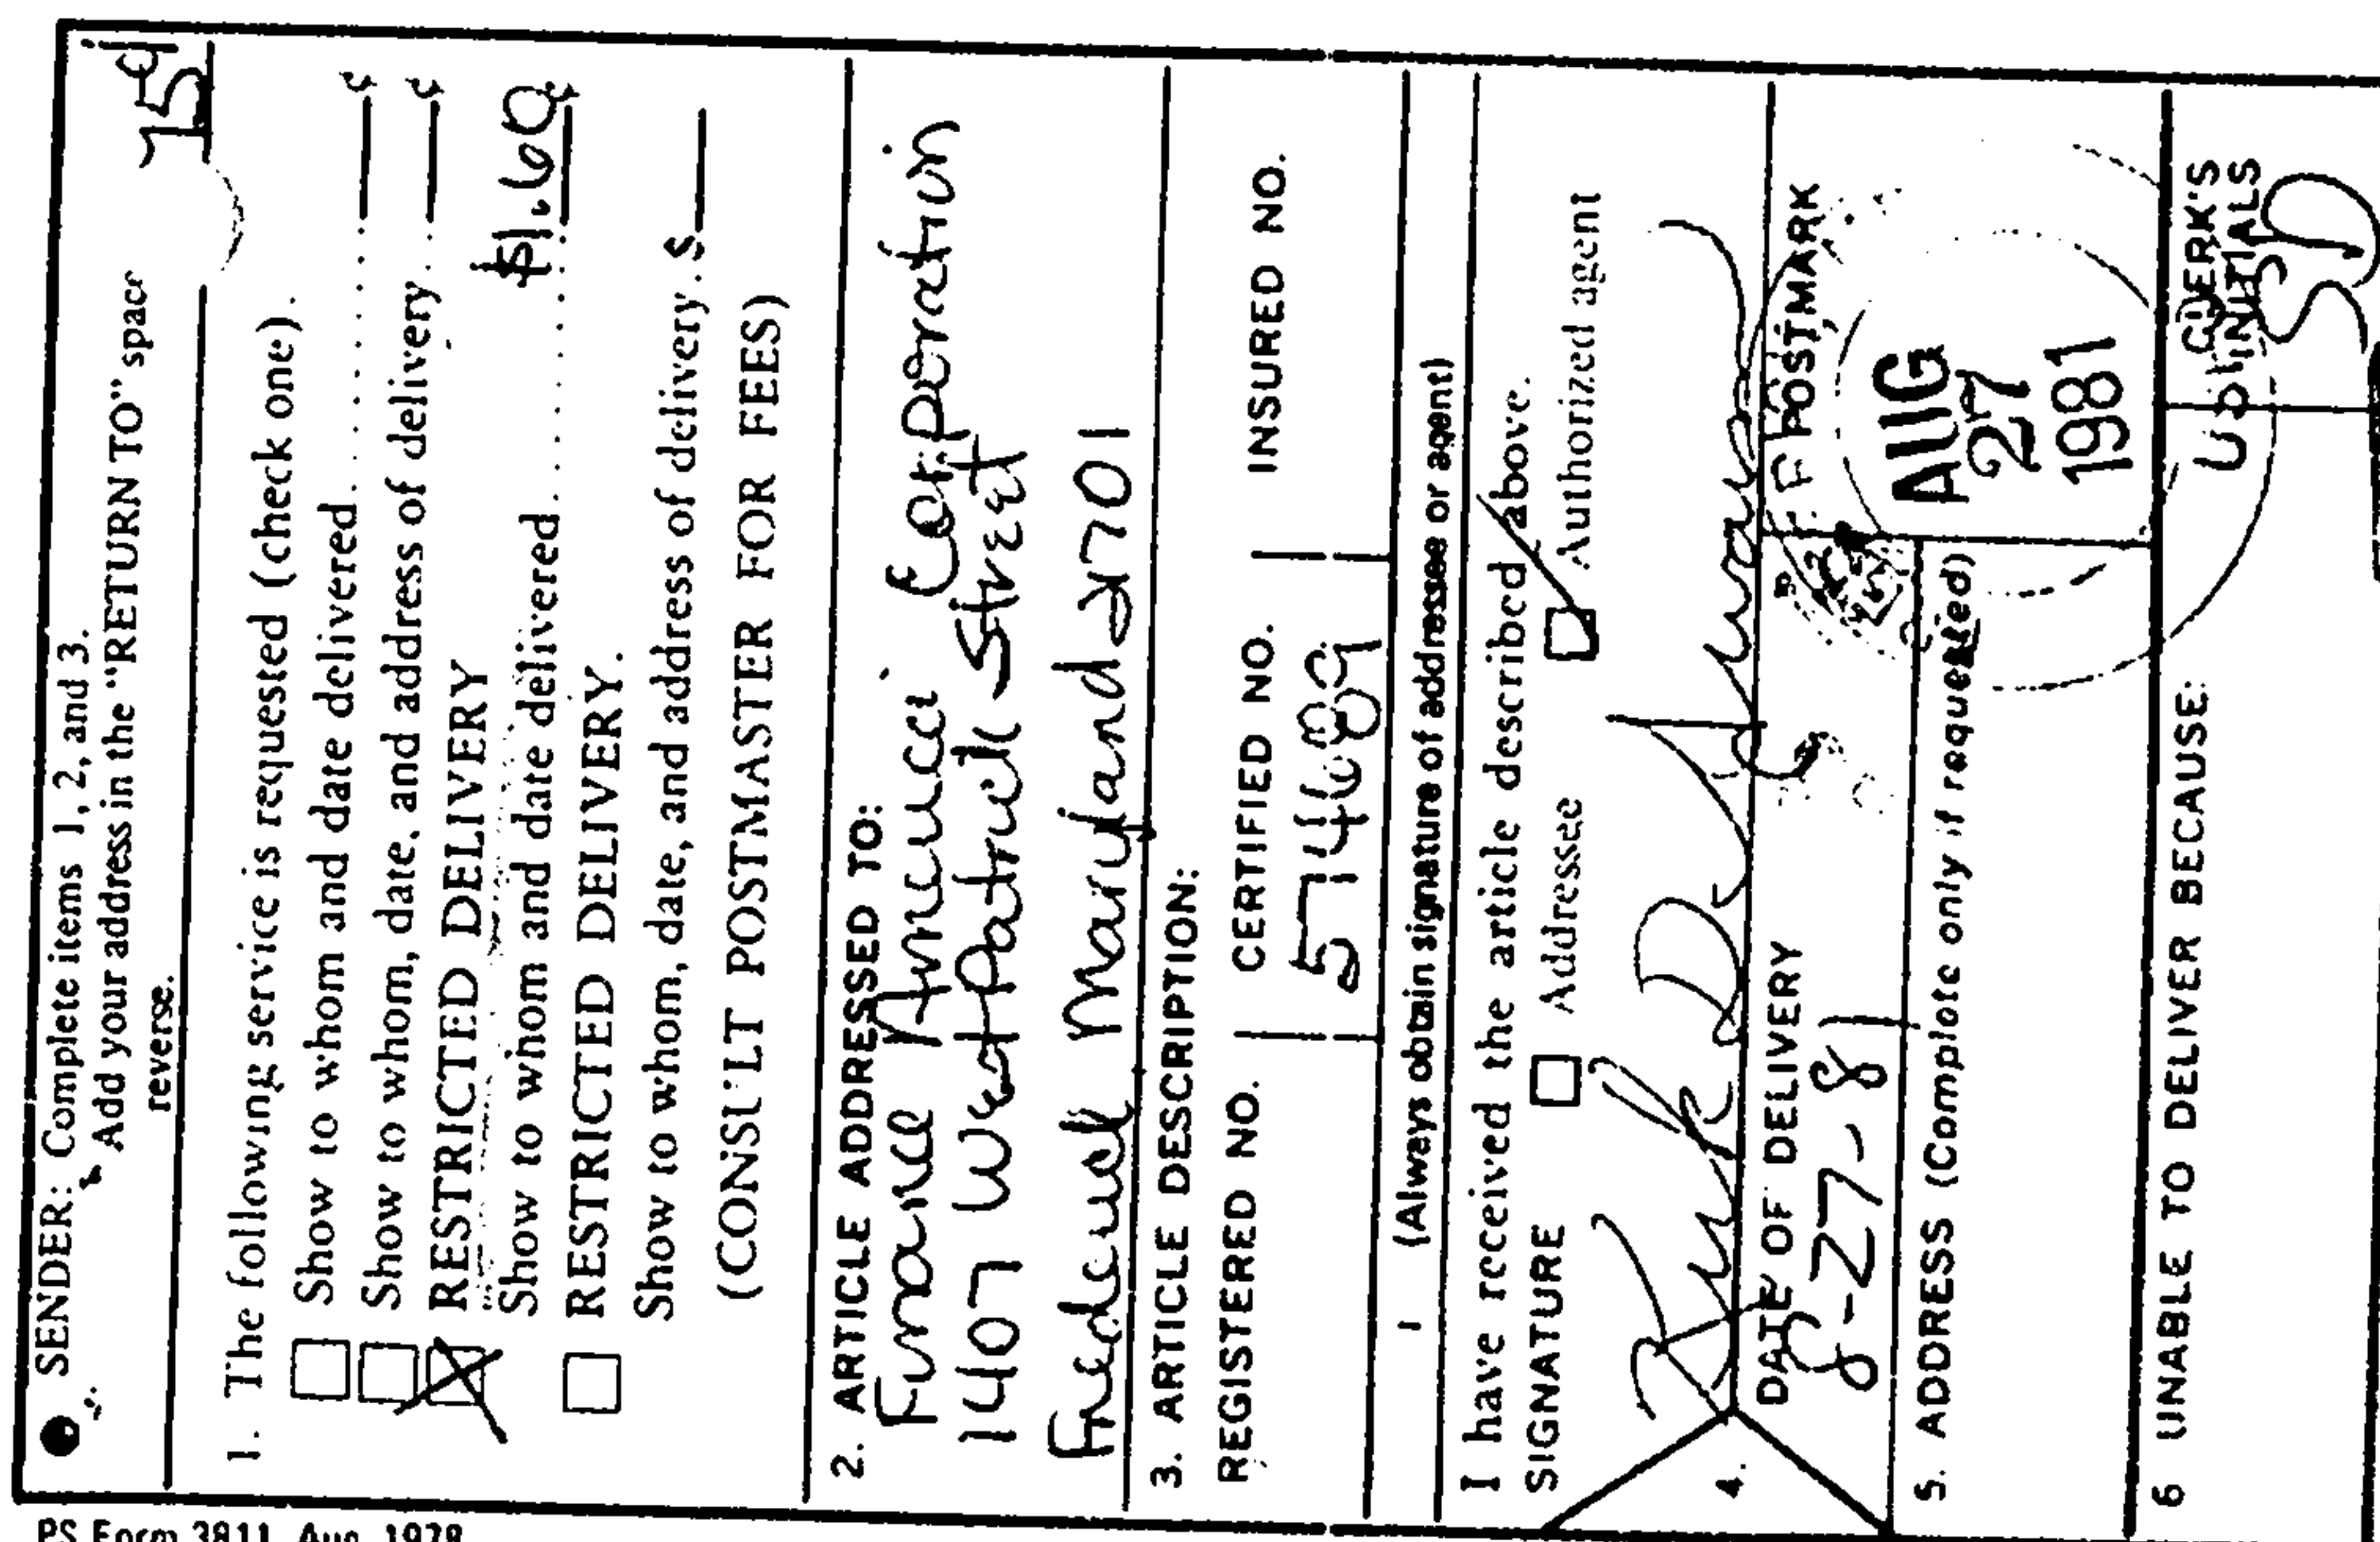 SENDER: Complete items 1, 2, and 3.
Add your address in the "RETURN TO" space
reverse.
1. The following service is requested (check one).
Show to whom and date delivered.......... ¢
Show to whom, date, and address of delivery.. ¢
RESTRICTED DELIVERY
Show to whom and date delivered.......... $1.60¢
RESTRICTED DELIVERY.
Show to whom, date, and address of delivery. $
(CONSULT POSTMASTER FOR FEES)
2. ARTICLE ADDRESSED TO:
Finance America Corporation
1407 West Patrick Street
Frederick Maryland 21701
3. ARTICLE DESCRIPTION:
REGISTERED NO. CERTIFIED NO. INSURED NO.
574689
(Always obtain signature of addressee or agent)
I have received the article described above.
SIGNATURE Addressee Authorized agent
4.
DATE OF DELIVERY POSTMARK
8-27-81
AUG
27
1981
5. ADDRESS (Complete only if requested)
6 UNABLE TO DELIVER BECAUSE: CLERK'S
INITIALS
PS Form 3811, Aug. 1978